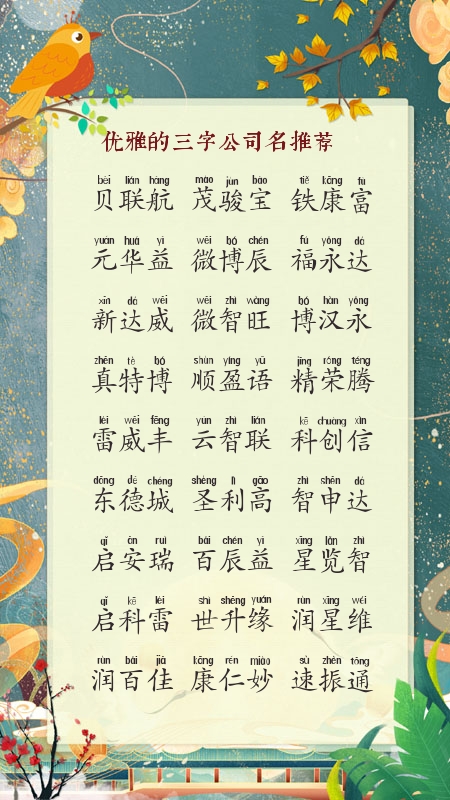 优雅的三字公司名推荐
bèi lián háng mào jùn bǎo tiě kāng fù
贝联航 茂骏宝 铁康富
yuán huá yì wēi bó chén fú yǒng dá
元华益 微博辰 福永达
xīn dá wēi wēi zhì wàng bó hàn yǒng
新达威 微智旺 博汉永
zhēn tè bó shùn yíng yǔ jīng róng téng
真特博 顺盈语 精荣腾
léi wēi fēng yún zhì lián kē chuàng xìn
雷威丰 云智联 科创信
dōng dé chéng shèng lì gāo zhì shēn dá
东德城 圣利高 智申达
qǐ ān ruì bǎi chén yì xīng lǎn zhì
启安瑞 百辰益 星览智
qǐ kē léi shì shēng yuán rùn xīng wéi
启科雷 世升缘 润星维
rùn bǎi jiā kāng rén miào sù zhèn tōng
润百佳 康仁妙 速振通